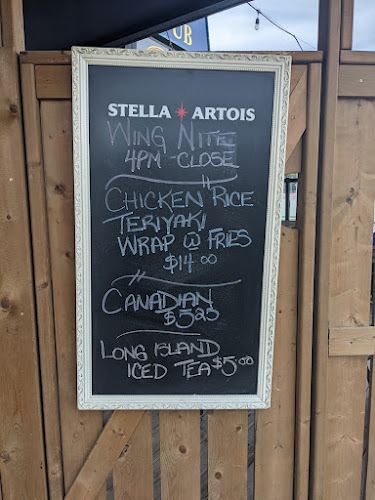 UB
STELLA ARTOIS
WING NITE
4PM - CLOSE
CHICKEN RICE
TERIYAKI
WRAP W FRIES
$14.00
CANADIAN
$5.25
LONG ISLAND
ICED TEA $5.00